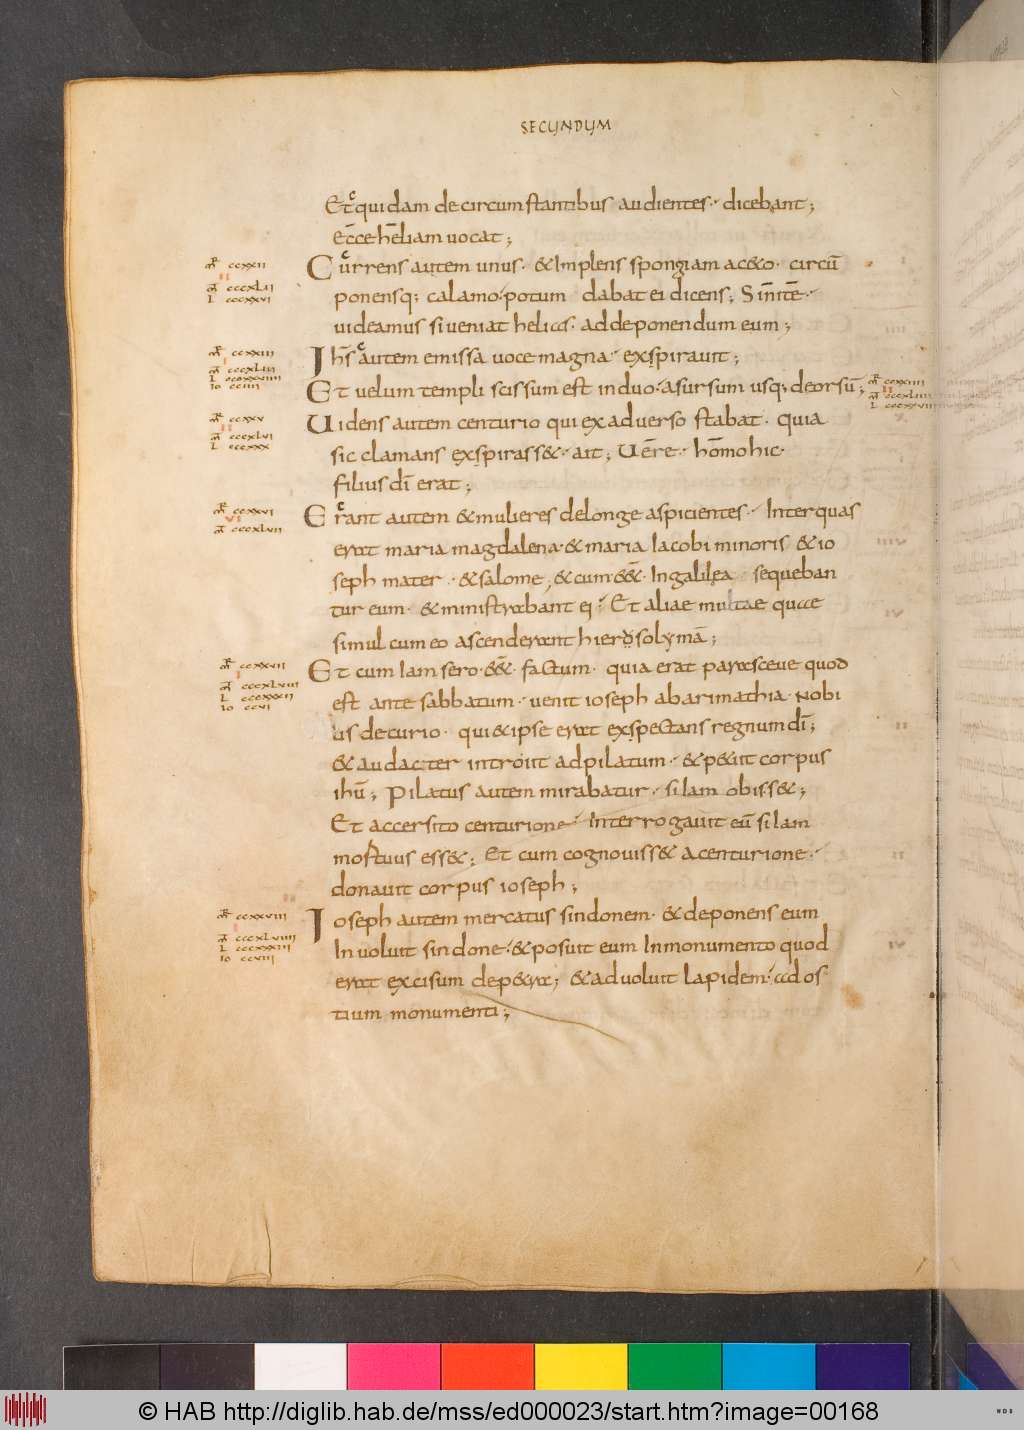 SECUNDUM
Et quidam de circumstantibus audientes. dicebant;
Ecce heliam vocat;
Currens autem unus. & implens spongiam ac&o. circū
ponensq; calamo. potum dabat ei dicens; Sinite.
uideamus si ueniat helias. ad deponendum eum;
Ihs autem emissa uoce magna. exspirauit;
Et uelum templi scissum est in duo. a sursum usq; deorsū;
Uidens autem centurio qui ex aduerso stabat. quia
sic clamans exspirass&. ait; Uere. homo hic.
filius dī erat;
Erant autem & mulieres de longe aspicientes. Inter quas
erat maria magdalena. & maria Iacobi minoris & io
seph mater. & salome, & cum ēē&. In galilea sequeban
tur eum. & ministrabant ei. Et aliae multae quae
simul cum eo ascenderant hierosolymā;
Et cum Iam sero. ēē&. factum. quia erat parasceue quod
est ante sabbatum. uenit ioseph ab arimathia. Nobi
lis decurio. qui & ipse erat exspectans regnum dī;
& audacter introiit ad pilatum. & p&iit corpus
ihū; Pilatus autem mirabatur. si Iam obiss&;
Et accersito centurione. interrogauit eū si Iam
mortuus ess&; Et cum cognouiss& a centurione.
donauit corpus ioseph;
Ioseph autem mercatus sindonem. & deponens eum
Inuoluit sindone. & posuit eum In monumento quod
erat excisum de p&ra; & aduoluit lapidem. ad os
tium monumenti;
ccxxii
cccxLii
L cccxxvi
ccxxiii
cccxLiii
ccxxiiii
ccxxv
cccxLvi
L cccxxx
ccxxvi
cccxLvii
ccxxvii
cccxLviii
L cccxxxii
Io ccvi
ccxxviii
cccxLviiii
L cccxxxiii
Io ccviii
© HAB http://diglib.hab.de/mss/ed000023/start.htm?image=00168